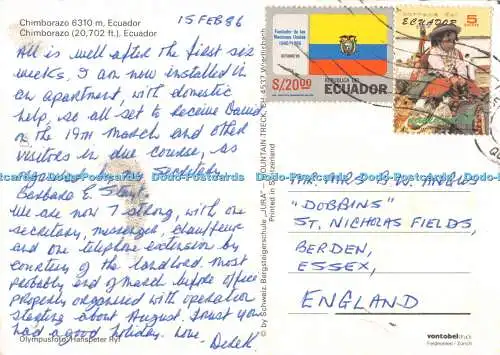 Chimborazo 6310 m, Ecuador
Chimborazo (20,702 ft.), Ecuador
15 FEB 86
All is well after the first six
weeks. I am now installed in
an apartment, with domestic
help, so all set to receive
on the 19th March and other
visitors in due course, as
Barbara E.
We are now 7 strong, with one
secretary, messenger, chauffeur
and one telephone extension by
courtesy of the landlord. Most
probably end of March before office
properly organised with operation
starting about August. Trust you
had a good holiday. Love. Derek
Olympusfoto: Hanspeter Ryf
© by Schweiz. Bergsteigerschule „JURA" – MOUNTAIN TRECK, CH-4577
Printed in Switzerland
Fundador de las
Naciones Unidas
S/20.00
REPUBLICA DEL
ECUADOR
correos del
ECUADOR
5
MR. MRS B.W. ANGUS
"DOBBINS"
ST. NICHOLAS FIELDS,
BERDEN,
ESSEX,
ENGLAND
vontobeldruck
Feldmeilen / Zürich
Dodo-Postcards Dodo-Postcards Dodo-Postcards Dodo-Postcards